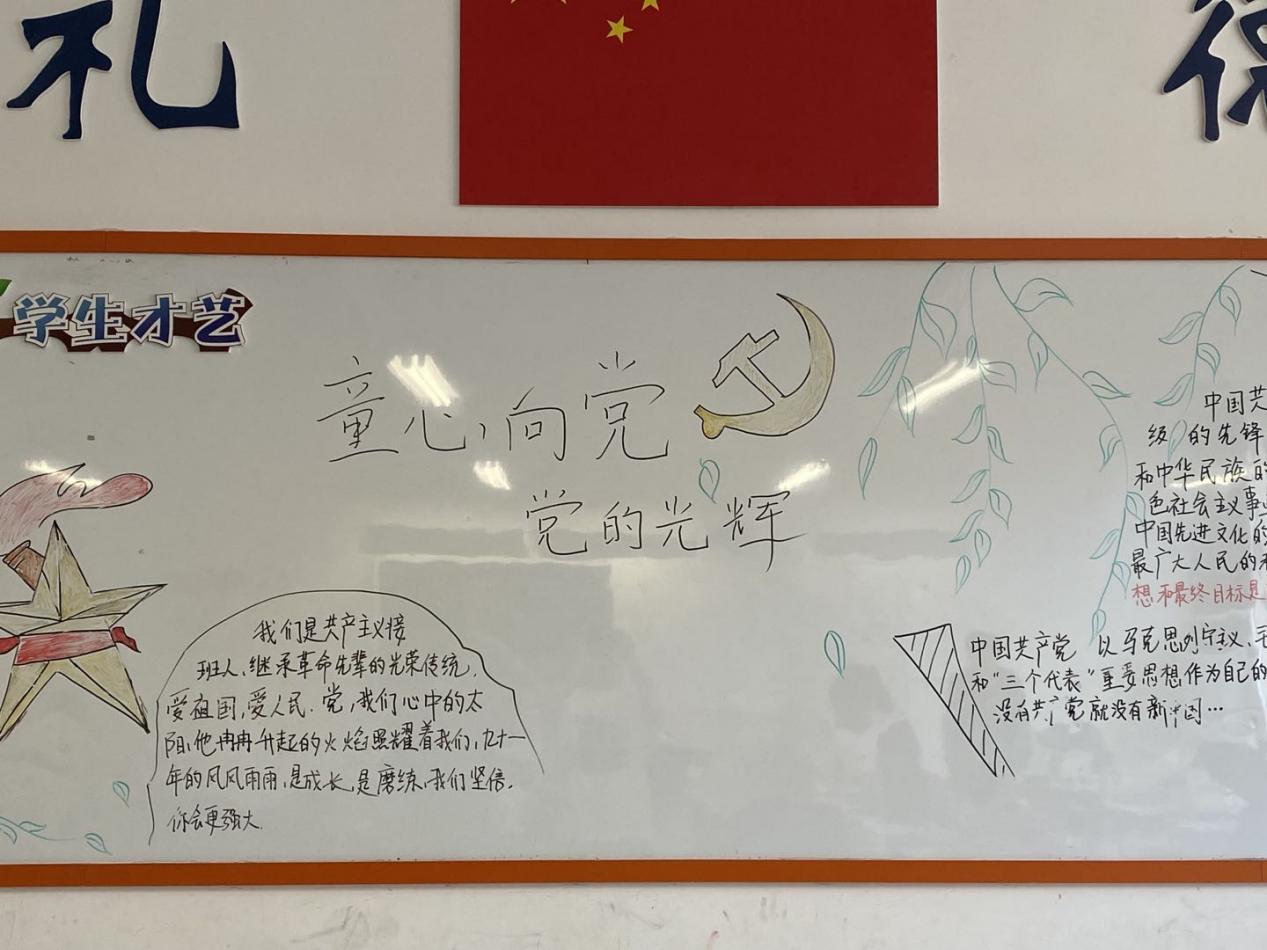 礼
德
学生才艺
童心向党
党的光辉
我们是共产主义接
班人、继承革命先辈的光荣传统,
爱祖国,爱人民、党,我们心中的太
阳,他冉冉升起的火焰照耀着我们,九十一
年的风风雨雨,是成长,是磨练,我们坚信,
你会更强大.
中国共
级 的先锋
和中华民族的
色社会主义事业
中国先进文化的
最广大人民的利
想和最终目标是
中国共产党 以马克思列宁主义、毛
和“三个代表”重要思想作为自己的
没有共产党就没有新中国…